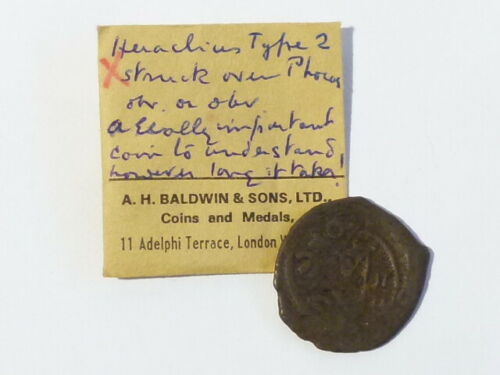 Heraclius Type 2
X struck over Phocas
obv. on obv
a really important
coin to understand,
however long it takes!
A. H. BALDWIN & SONS, LTD.,
Coins and Medals,
11 Adelphi Terrace, London W